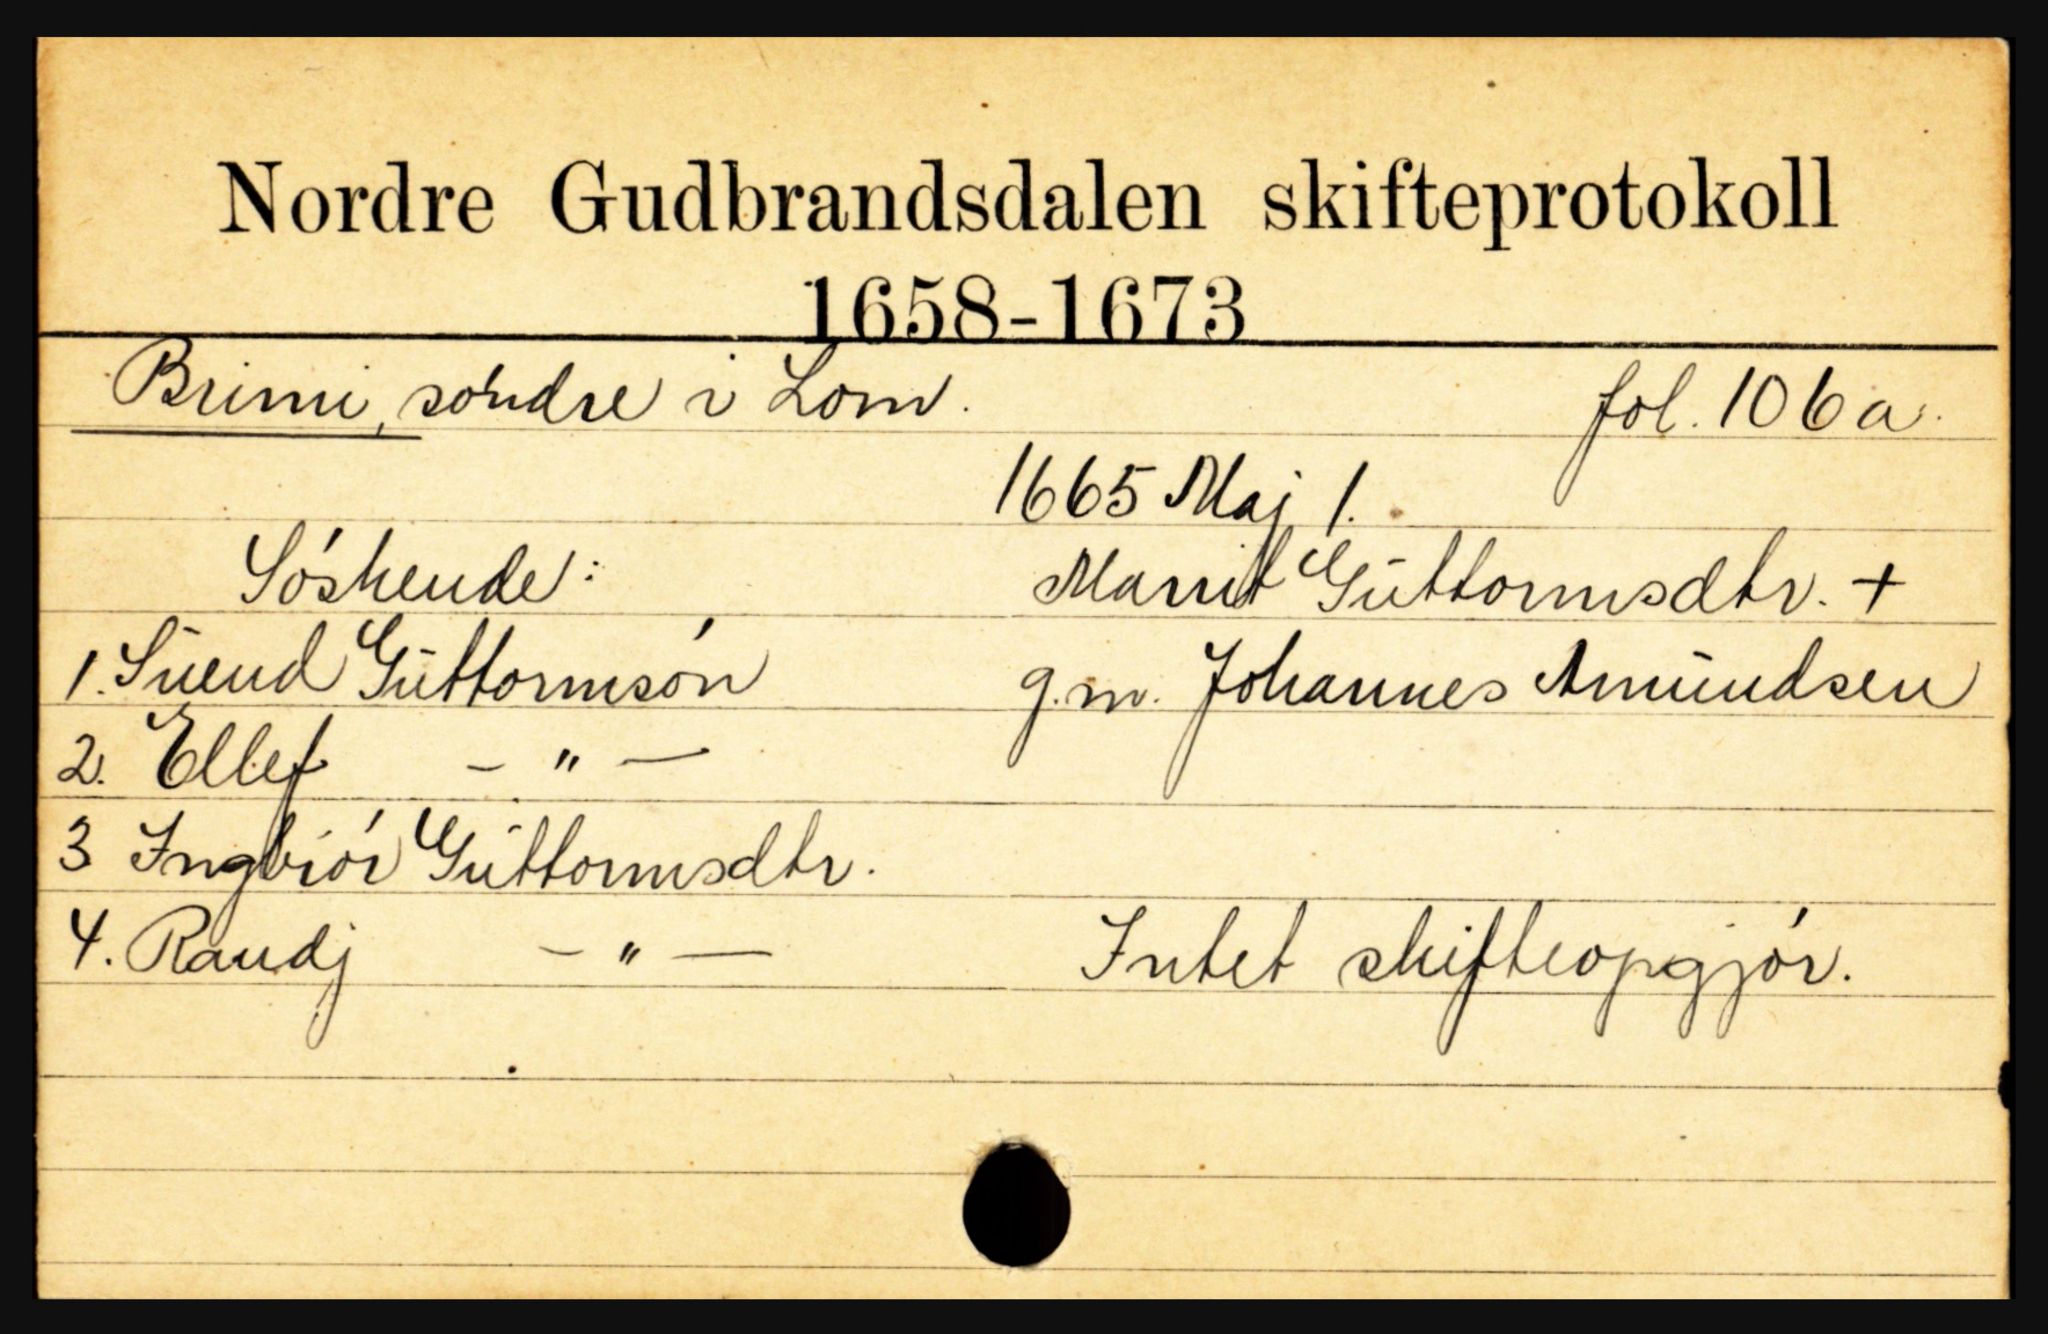 Nordre Gudbrandsdalen skifteprotokoll
1658-1673
Brimi, söndre i Lom. fol. 106a.
1665 Maj 1.
Söskende: Marrit Guttormsdtr. +
1. Suend Guttormsön g.m. Johannes Amundsen
2. Ellef - " -
3 Ingbiör Guttormsdtr.
4. Randj - " - Intet skifteopgjör.